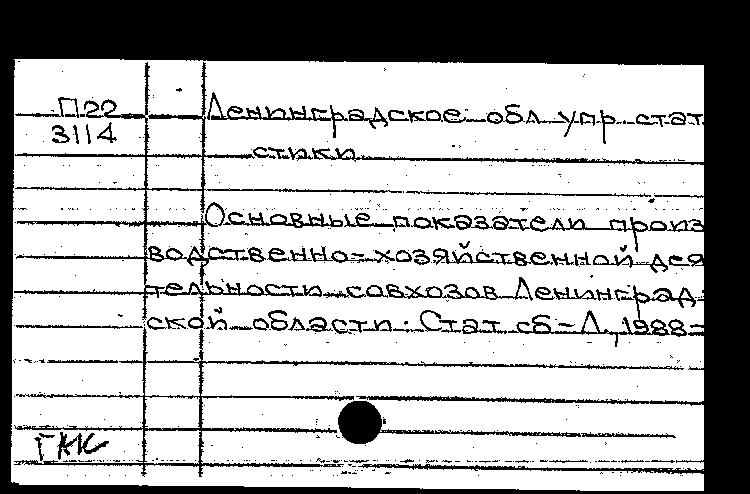 П22
3114
Ленинградское обл упр стат
стики
Основные показатели произ
водственно-хозяйственной дея
тельности совхозов Ленинград-
ской области: Стат сб-Л., 1988-
ГКК